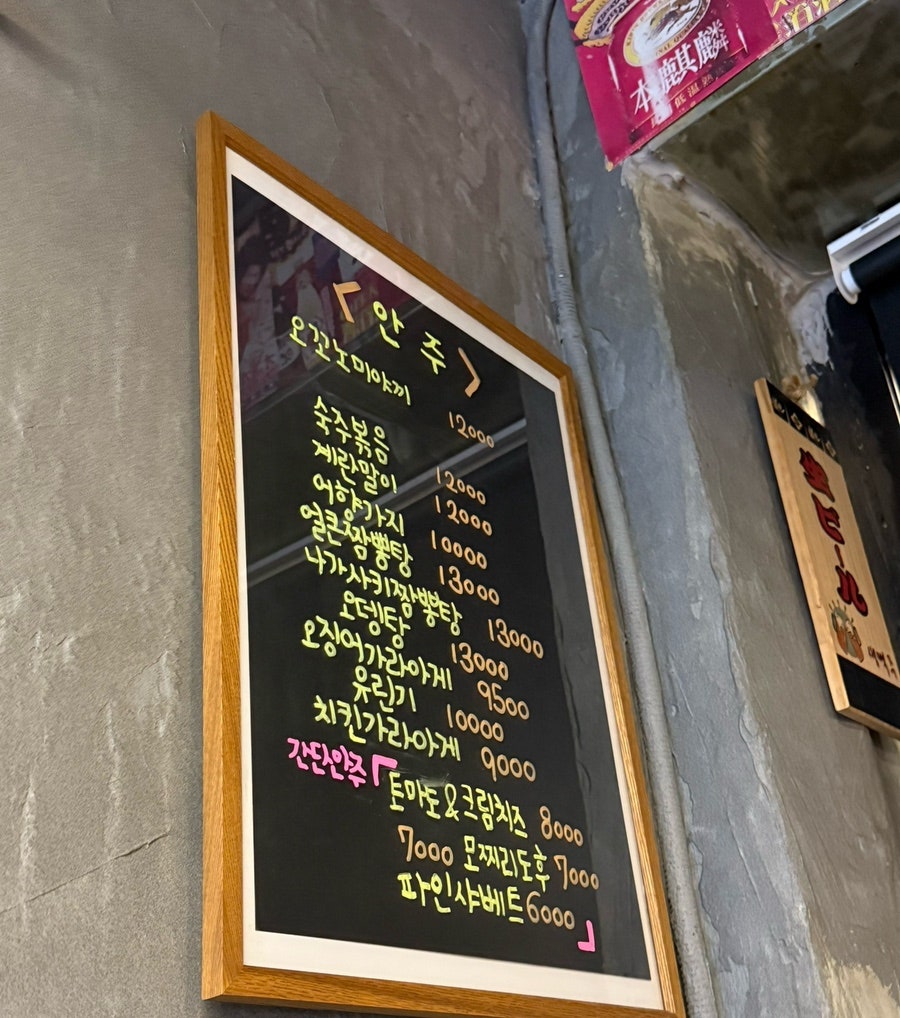 本麒麟
「안주」
오꼬노미야끼 12000
숙주볶음 12000
계란말이 12000
어향가지 10000
얼큰짬뽕탕 13000
나가사키짬뽕탕 13000
오뎅탕 13000
오징어가라아게 9500
유린기 10000
치킨가라아게 9000
간단안주「
토마토&크림치즈 8000
7000 모찌리도후 7000
파인샤베트 6000
」
生ビール